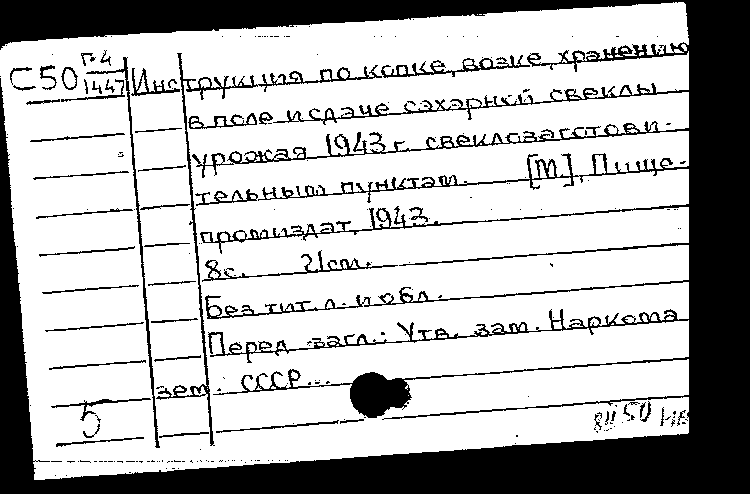 С50 Г-4/1447 Инструкция по копке, возке, хранению
в поле и сдаче сахарной свеклы
урожая 1943 г. свеклозаготови-
тельным пунктам. [М], Пище-
промиздат, 1943.
8 с. 21 см.
Без тит. л. и обл.
Перед загл.: Утв. зам. Наркома
зем. СССР...
5
8II 50